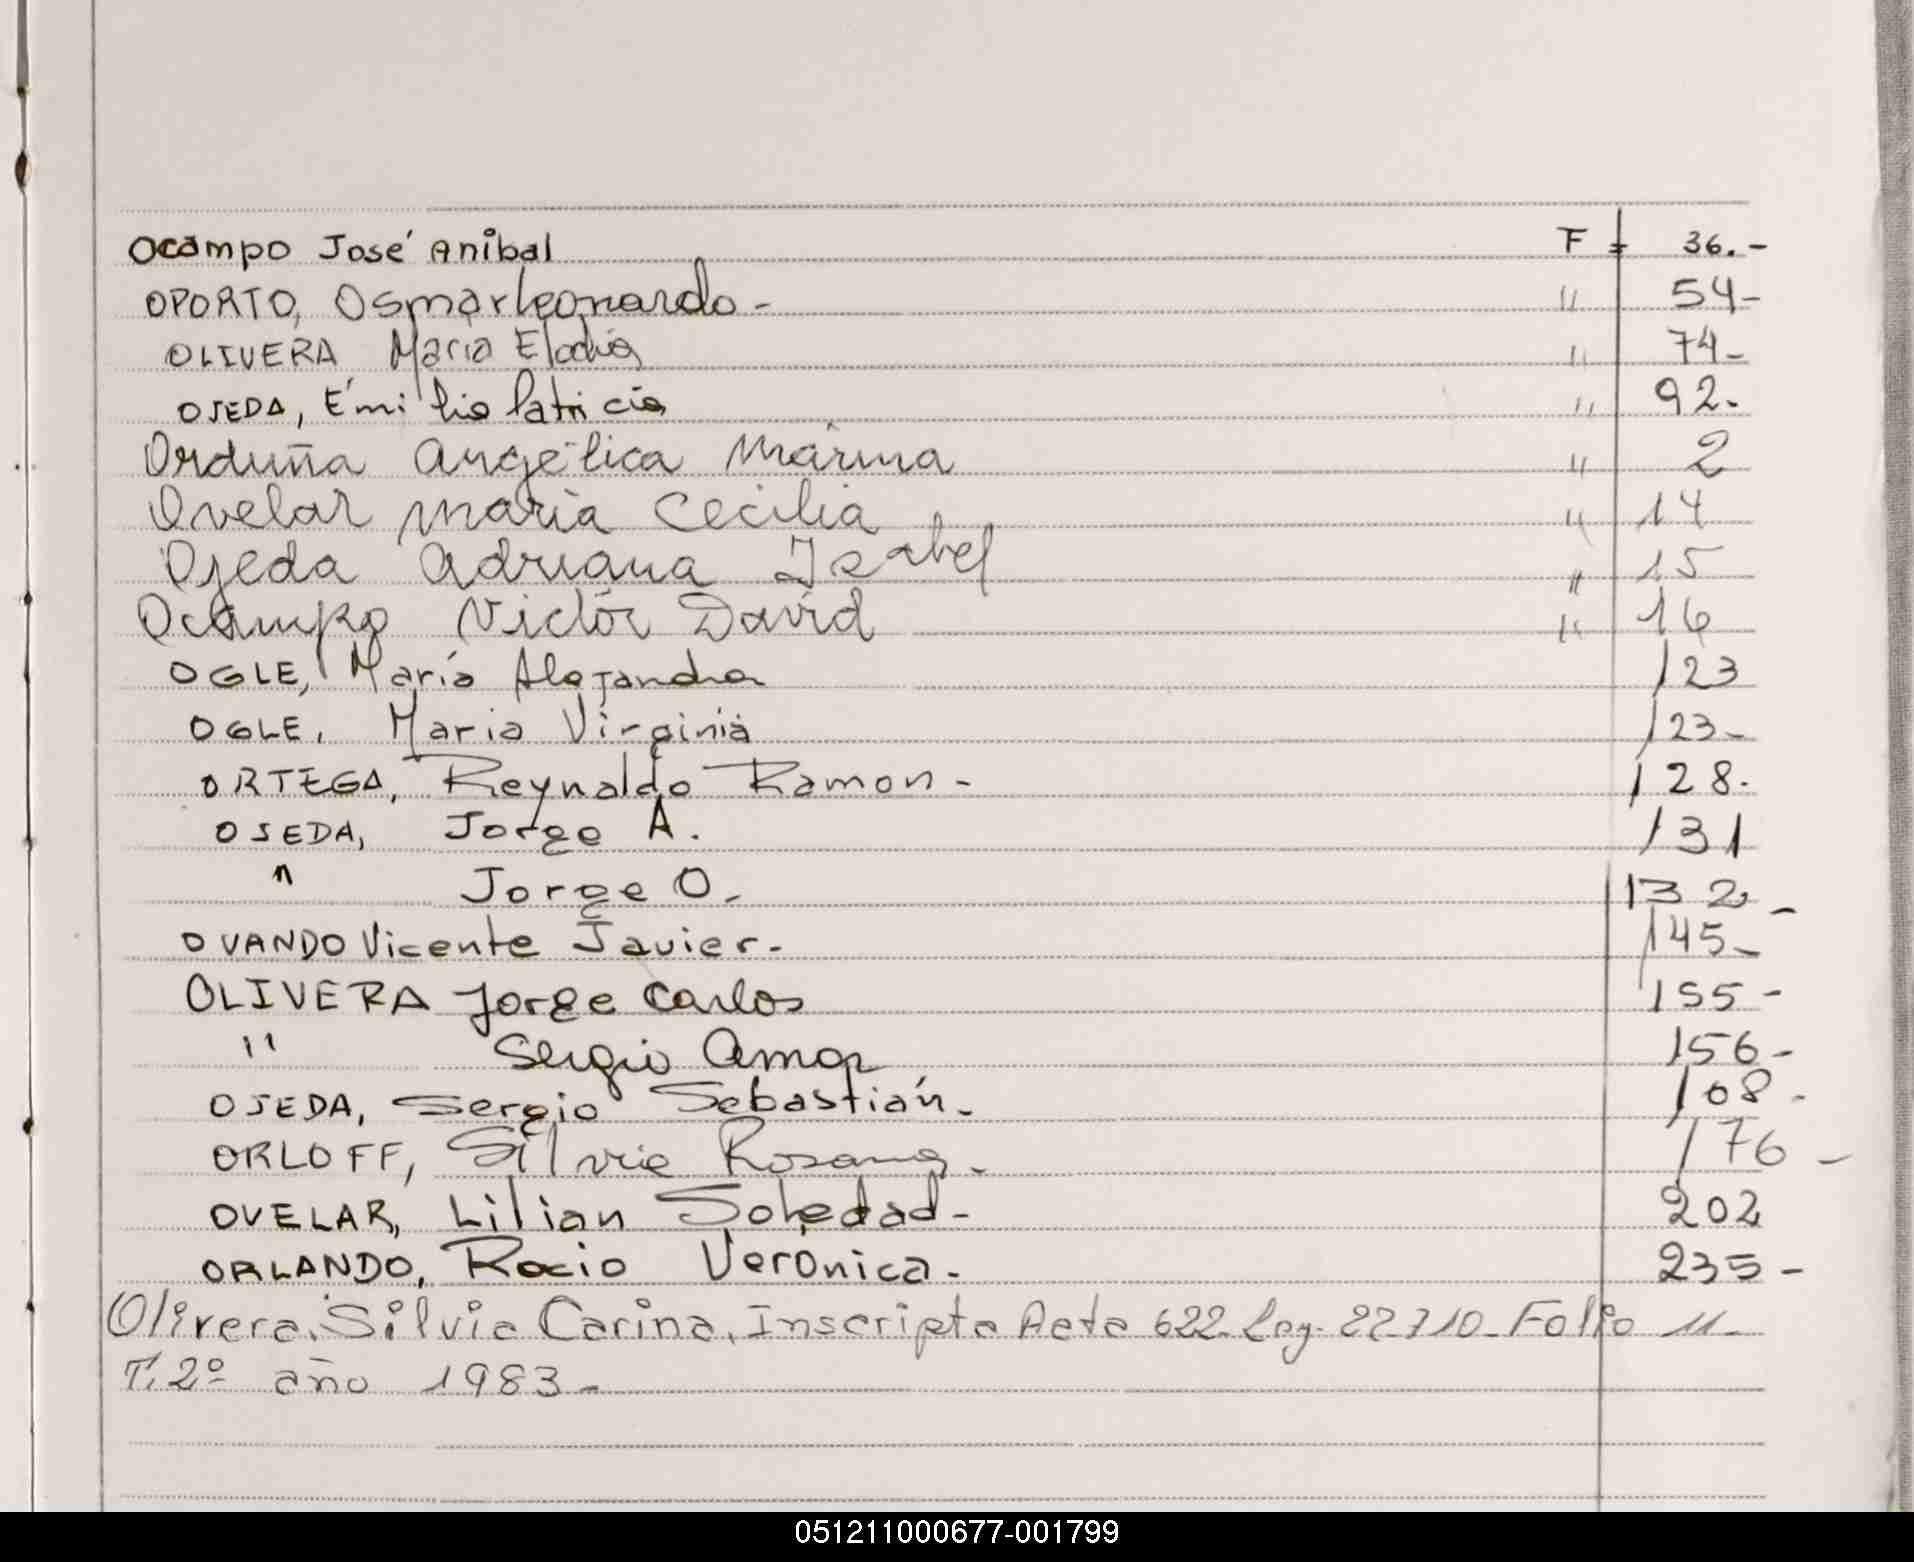 Ocampo José Anibal F = 36.-
OPORTO, Osmar Leonardo - " 54-
OLIVERA Maria Elodia " 74-
OJEDA, Emilio Patricio " 92-
Orduña Angélica Marina " 2
Ovelar María Cecilia " 14
Ojeda Adriana Isabel " 15
Ocampo Victor David " 16
OGLE, María Alejandra 123
OGLE, Maria Virginia 123-
ORTEGA, Reynaldo Ramon - 128-
OJEDA, Jorge A. 131
" Jorge O. 132-
OVANDO Vicente Javier - 145-
OLIVERA Jorge Carlos 155-
" Sergio Omar 156-
OJEDA, Sergio Sebastián - 108-
ORLOFF, Silvia Rosana - 176-
OVELAR, Lilian Soledad - 202
ORLANDO, Rocio Veronica - 235-
Olivera, Silvia Carina, Inscripta Acta 622 Ley- 22710- Folio 11-
T. 2º año 1983-
051211000677-001799